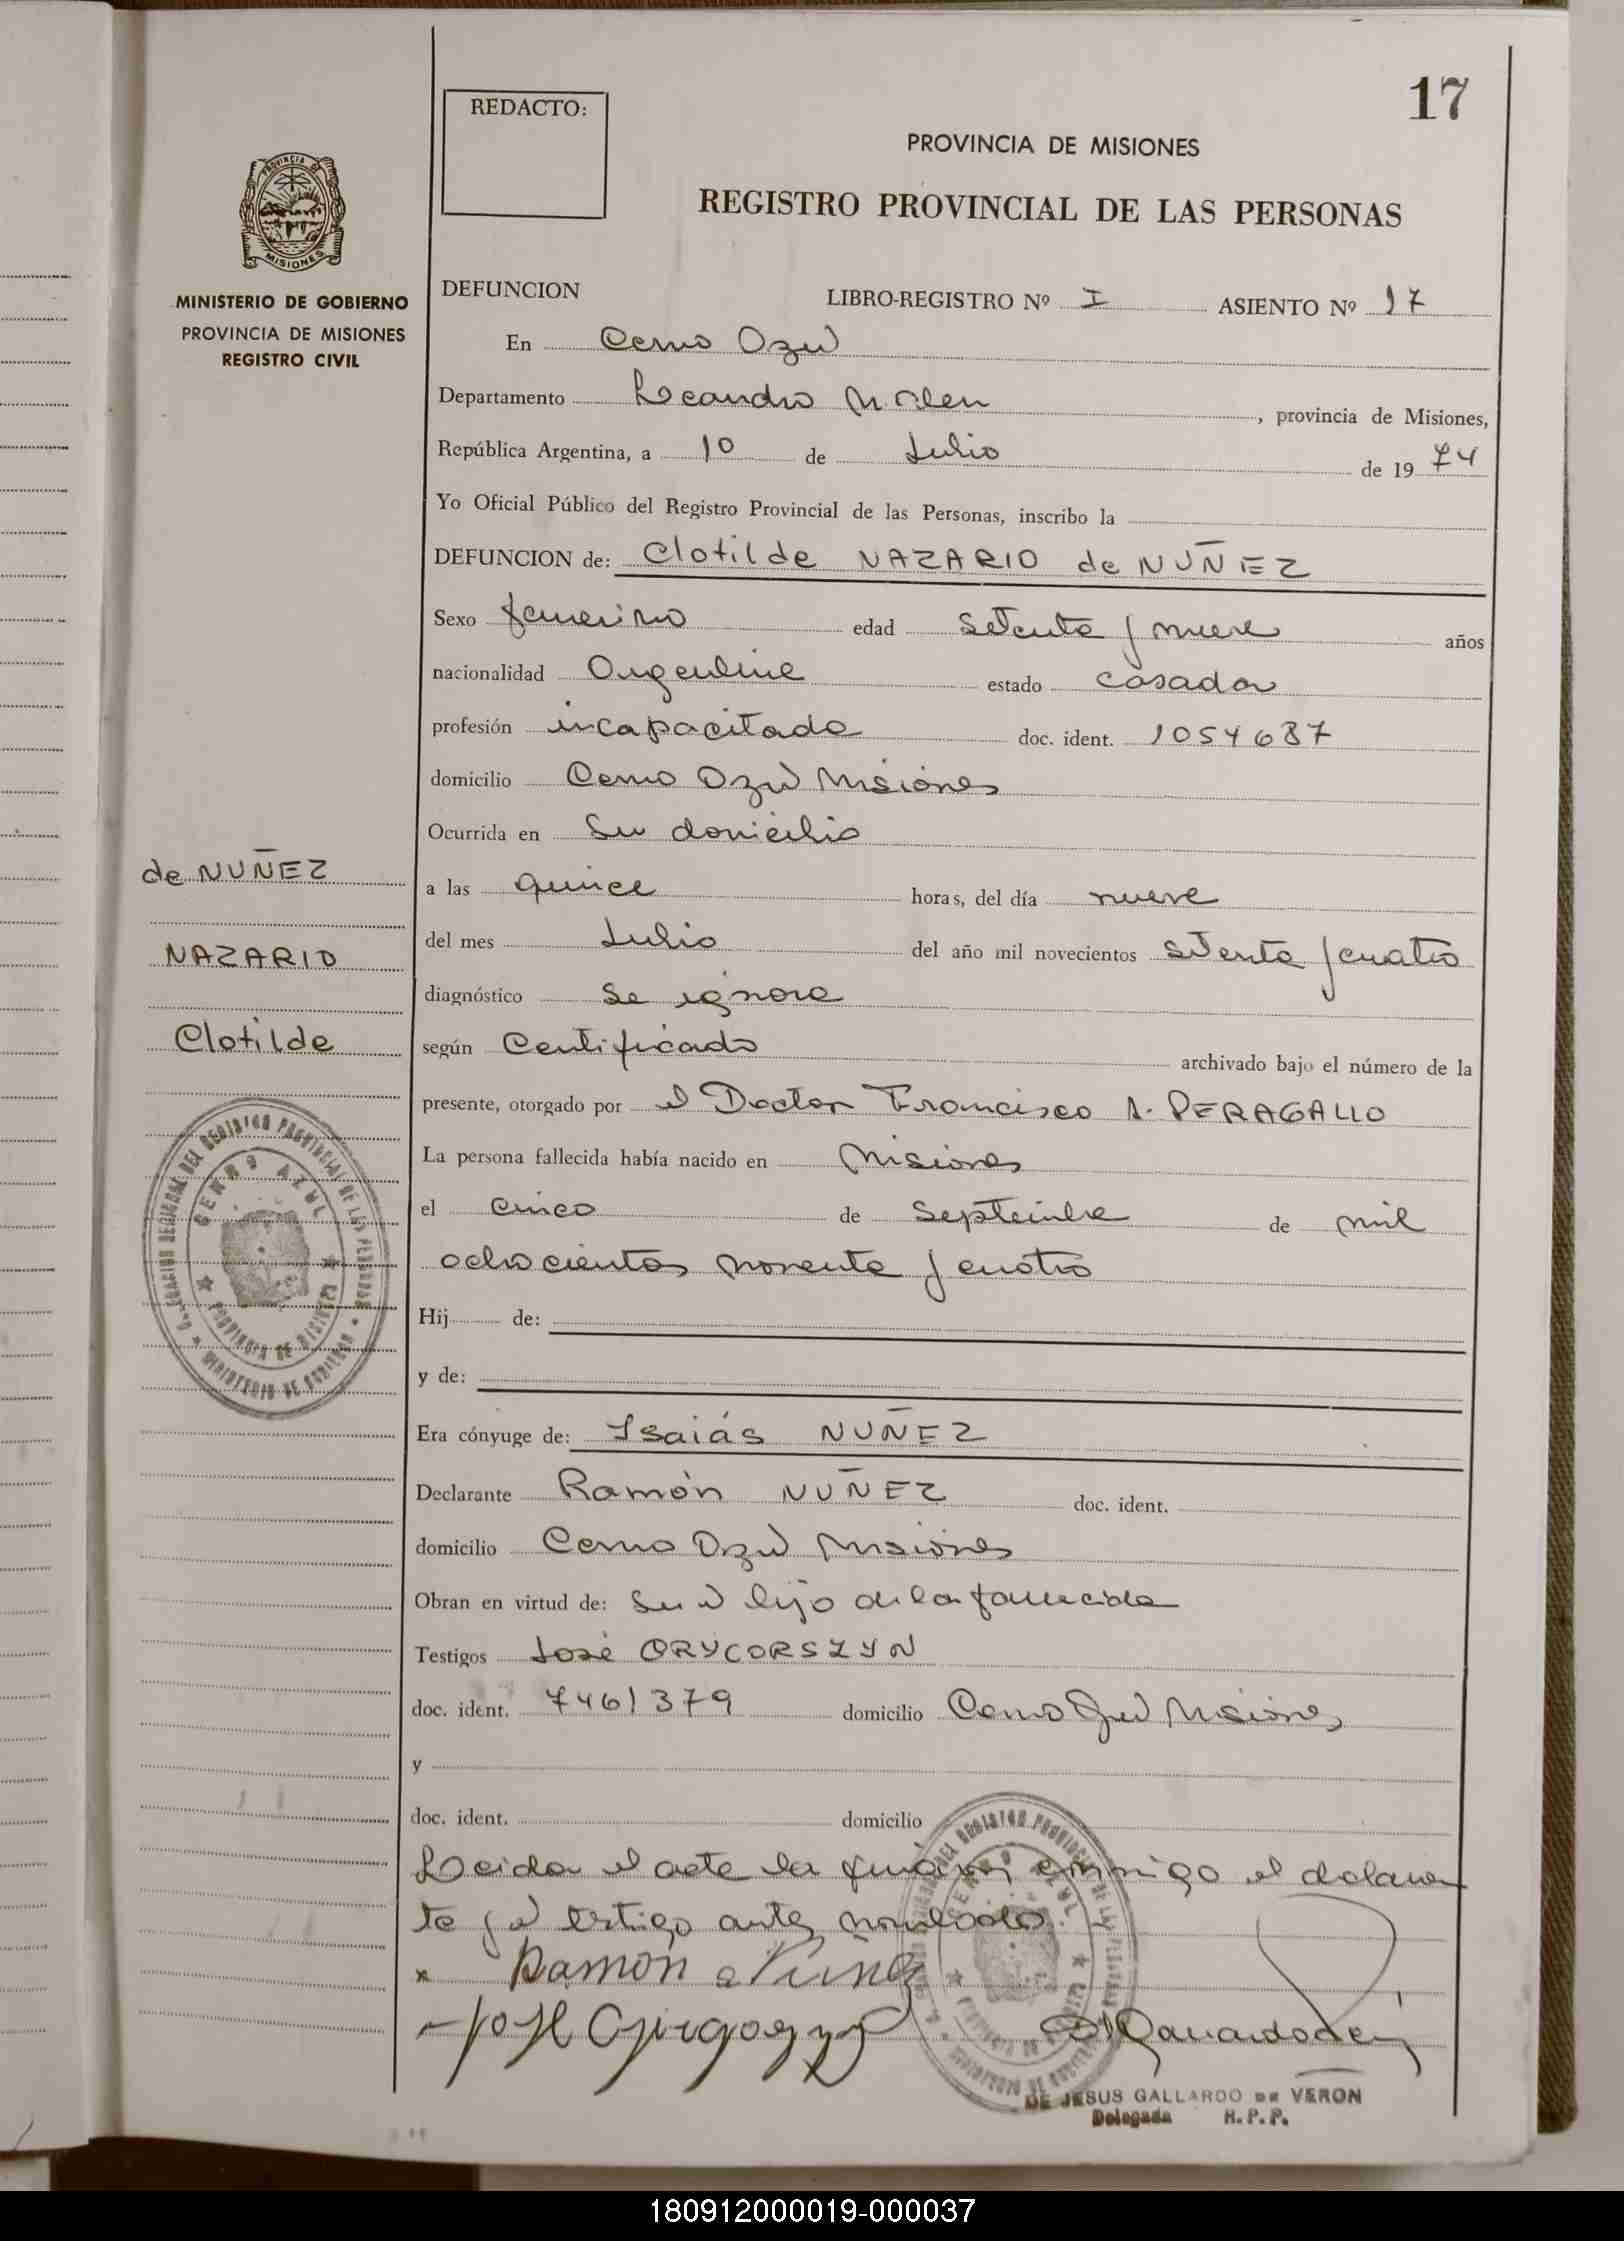 17
REDACTO:
PROVINCIA DE MISIONES
REGISTRO PROVINCIAL DE LAS PERSONAS
PROVINCIA DE
MISIONES
MINISTERIO DE GOBIERNO
PROVINCIA DE MISIONES
REGISTRO CIVIL
DEFUNCION LIBRO-REGISTRO Nº I ASIENTO Nº 17
En Cerro Azul
Departamento Leandro N. Alem, provincia de Misiones,
República Argentina, a 10 de Julio de 1974
Yo Oficial Público del Registro Provincial de las Personas, inscribo la
DEFUNCION de: Clotilde NAZARIO de NUÑEZ
Sexo femenino edad setenta y nueve años
nacionalidad Argentina estado casada
profesión incapacitada doc. ident. 1054687
domicilio Cerro Azul Misiones
Ocurrida en Su domicilio
a las quince horas, del día nueve
del mes Julio del año mil novecientos setenta y cuatro
diagnóstico Se ignora
según Certificado archivado bajo el número de la
presente, otorgado por el Doctor Francisco A. PERAGALLO
La persona fallecida había nacido en Misiones
el cinco de Septiembre de mil
ochocientos noventa y cuatro
Hij de:
y de:
Era cónyuge de: Isaiás NUÑEZ
Declarante Ramón NUÑEZ doc. ident.
domicilio Cerro Azul Misiones
Obran en virtud de: Ser el hijo de la fallecida
Testigos José ORYCORSZYN
doc. ident. 7461379 domicilio Cerro Azul Misiones
y
doc. ident. domicilio
Leida el acta la firman conmigo el declaran
te y el testigo antes nombrados.
x Ramón Nuñe
José
DE JESUS GALLARDO DE VERON
Delegada R.P.P.
de NUÑEZ
NAZARIO
Clotilde
DELEGACION REGIONAL DEL REGISTRO PROVINCIAL DE LAS PERSONAS
CERRO AZUL
PROVINCIA DE MISIONES
MINISTERIO DE GOBIERNO
180912000019-000037